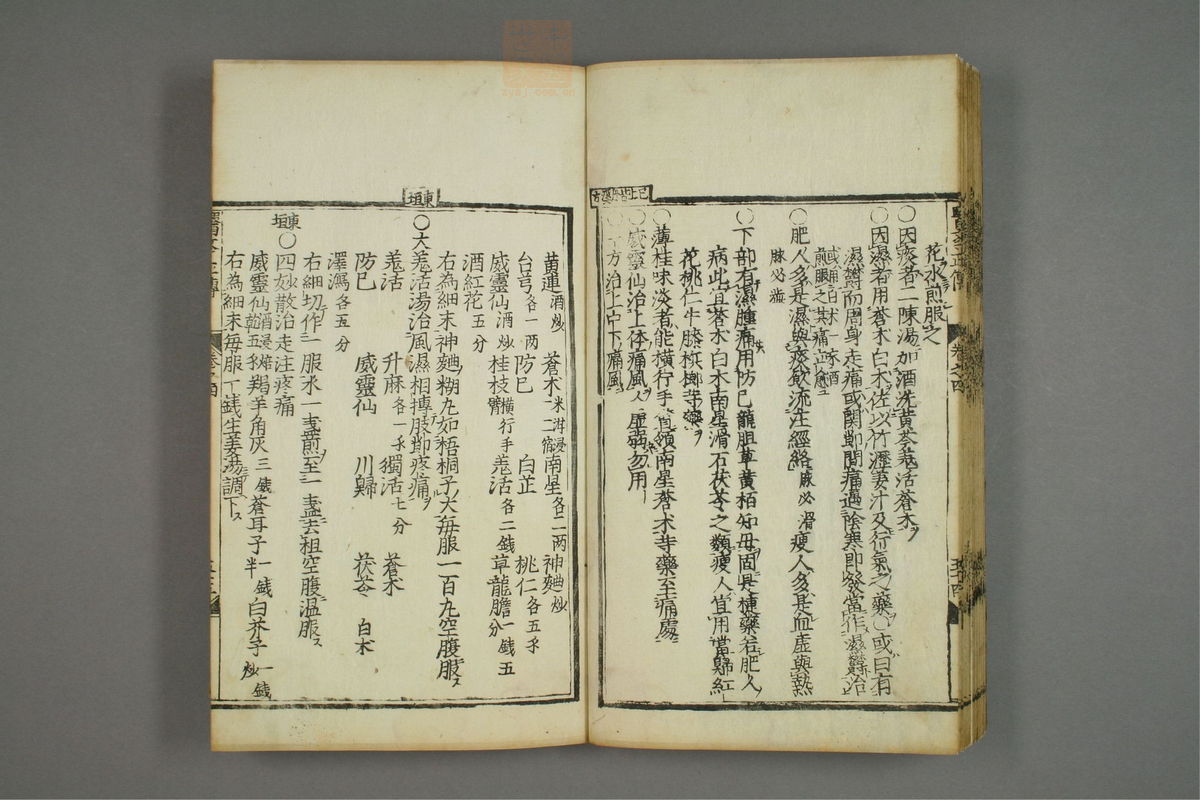 花水煎服之
○因痰者二陳湯加酒洗黃芩羗活蒼木
○因濕者用蒼木白木佐以竹瀝姜汁及行氣之藥○或曰有
濕鬱而周身走痛或関節間痛遇陰寒即發當作濕鬱治
○肥人多是濕與痰飲流注經絡脉必滑瘦人多是血虛與熱
脉必濇
○下部有濕腫痛用防已龍胆草黃栢知母固是捷藥若肥人
病此宜蒼木白木南星滑石茯苓之類瘦人宜用當歸紅
花桃仁牛膝梹榔等藥
○薄桂味淡者能橫行手臂領南星蒼木等藥至痛處
○威靈仙治上体痛風人虛弱勿用
方治上中下痛風
已上皆丹溪方
黃連酒炒 蒼木米泔浸二宿 南星各二两 神麯炒
台芎各一两 防已 白芷 桃仁各五錢
威靈仙酒炒 桂枝橫行手臂 羗活各二錢 草龍膽一錢五分
酒紅花五分
右為細末神麯糊丸如梧桐子大每服一百丸空腹服
○大羗活湯治風濕相搏肢節疼痛
東垣
羗活 升麻各一錢 獨活七分 蒼木
防已 威靈仙 川歸 茯苓 白木
澤瀉各五分
右細切作一服水二盞煎至一盞去柤空腹温服
東垣○四妙散治走注疼痛
威靈仙酒浸焙乾五錢 羯羊角灰三錢 蒼耳子一錢半 白芥子一錢炒
右為細末每服一錢生姜湯調下
zysj.com.cn